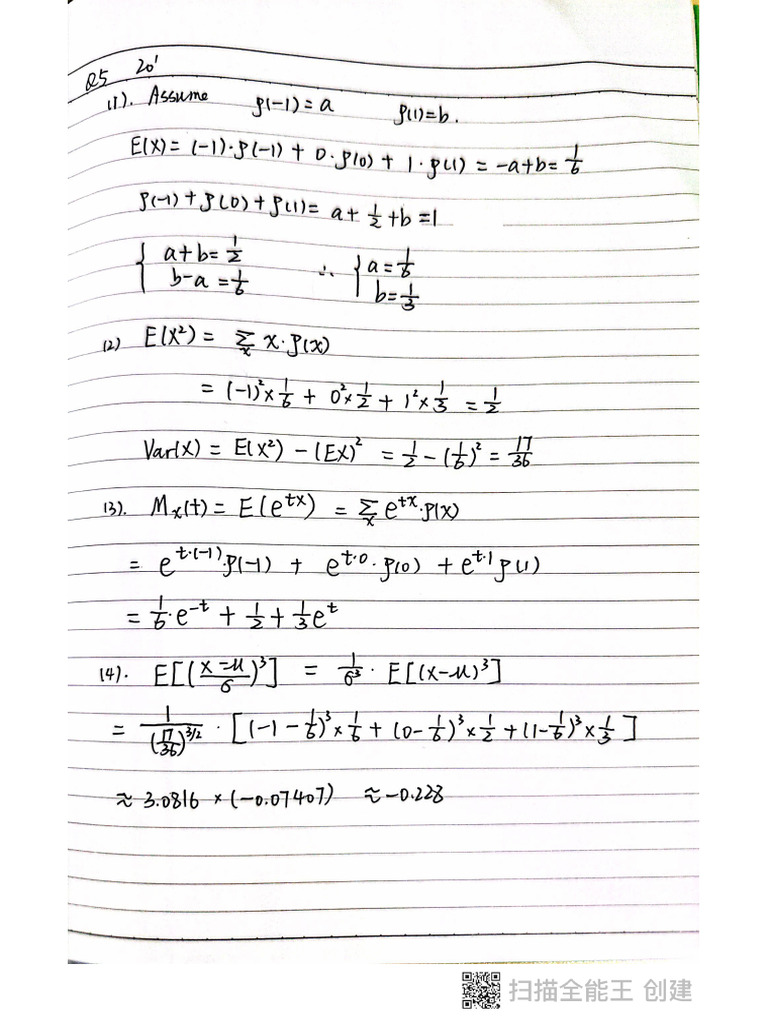 Q5 20'
(1). Assume p(-1) = a p(1) = b.
E(X) = (-1)·p(-1) + 0·p(0) + 1·p(1) = -a+b = 1/6
p(-1) + p(0) + p(1) = a + 1/2 + b = 1
{ a+b = 1/2 ∴ { a = 1/6
b-a = 1/6 b = 1/3
(2) E(X²) = Σₓ x·p(x)
= (-1)²×1/6 + 0²×1/2 + 1²×1/3 = 1/2
Var(X) = E(X²) - (EX)² = 1/2 - (1/6)² = 17/36
(3). Mₓ(t) = E(e^{tX}) = Σₓ e^{tx}·p(x)
= e^{t·(-1)}·p(-1) + e^{t·0}·p(0) + e^{t·1} p(1)
= 1/6·e^{-t} + 1/2 + 1/3 e^{t}
(4). E[((X-μ)/σ)³] = 1/σ³ · E[(X-μ)³]
= 1/(17/36)^{3/2} · [(-1-1/6)³×1/6 + (0-1/6)³×1/2 + (1-1/6)³×1/3]
≈ 3.0816 × (-0.07407) ≈ -0.228
扫描全能王 创建